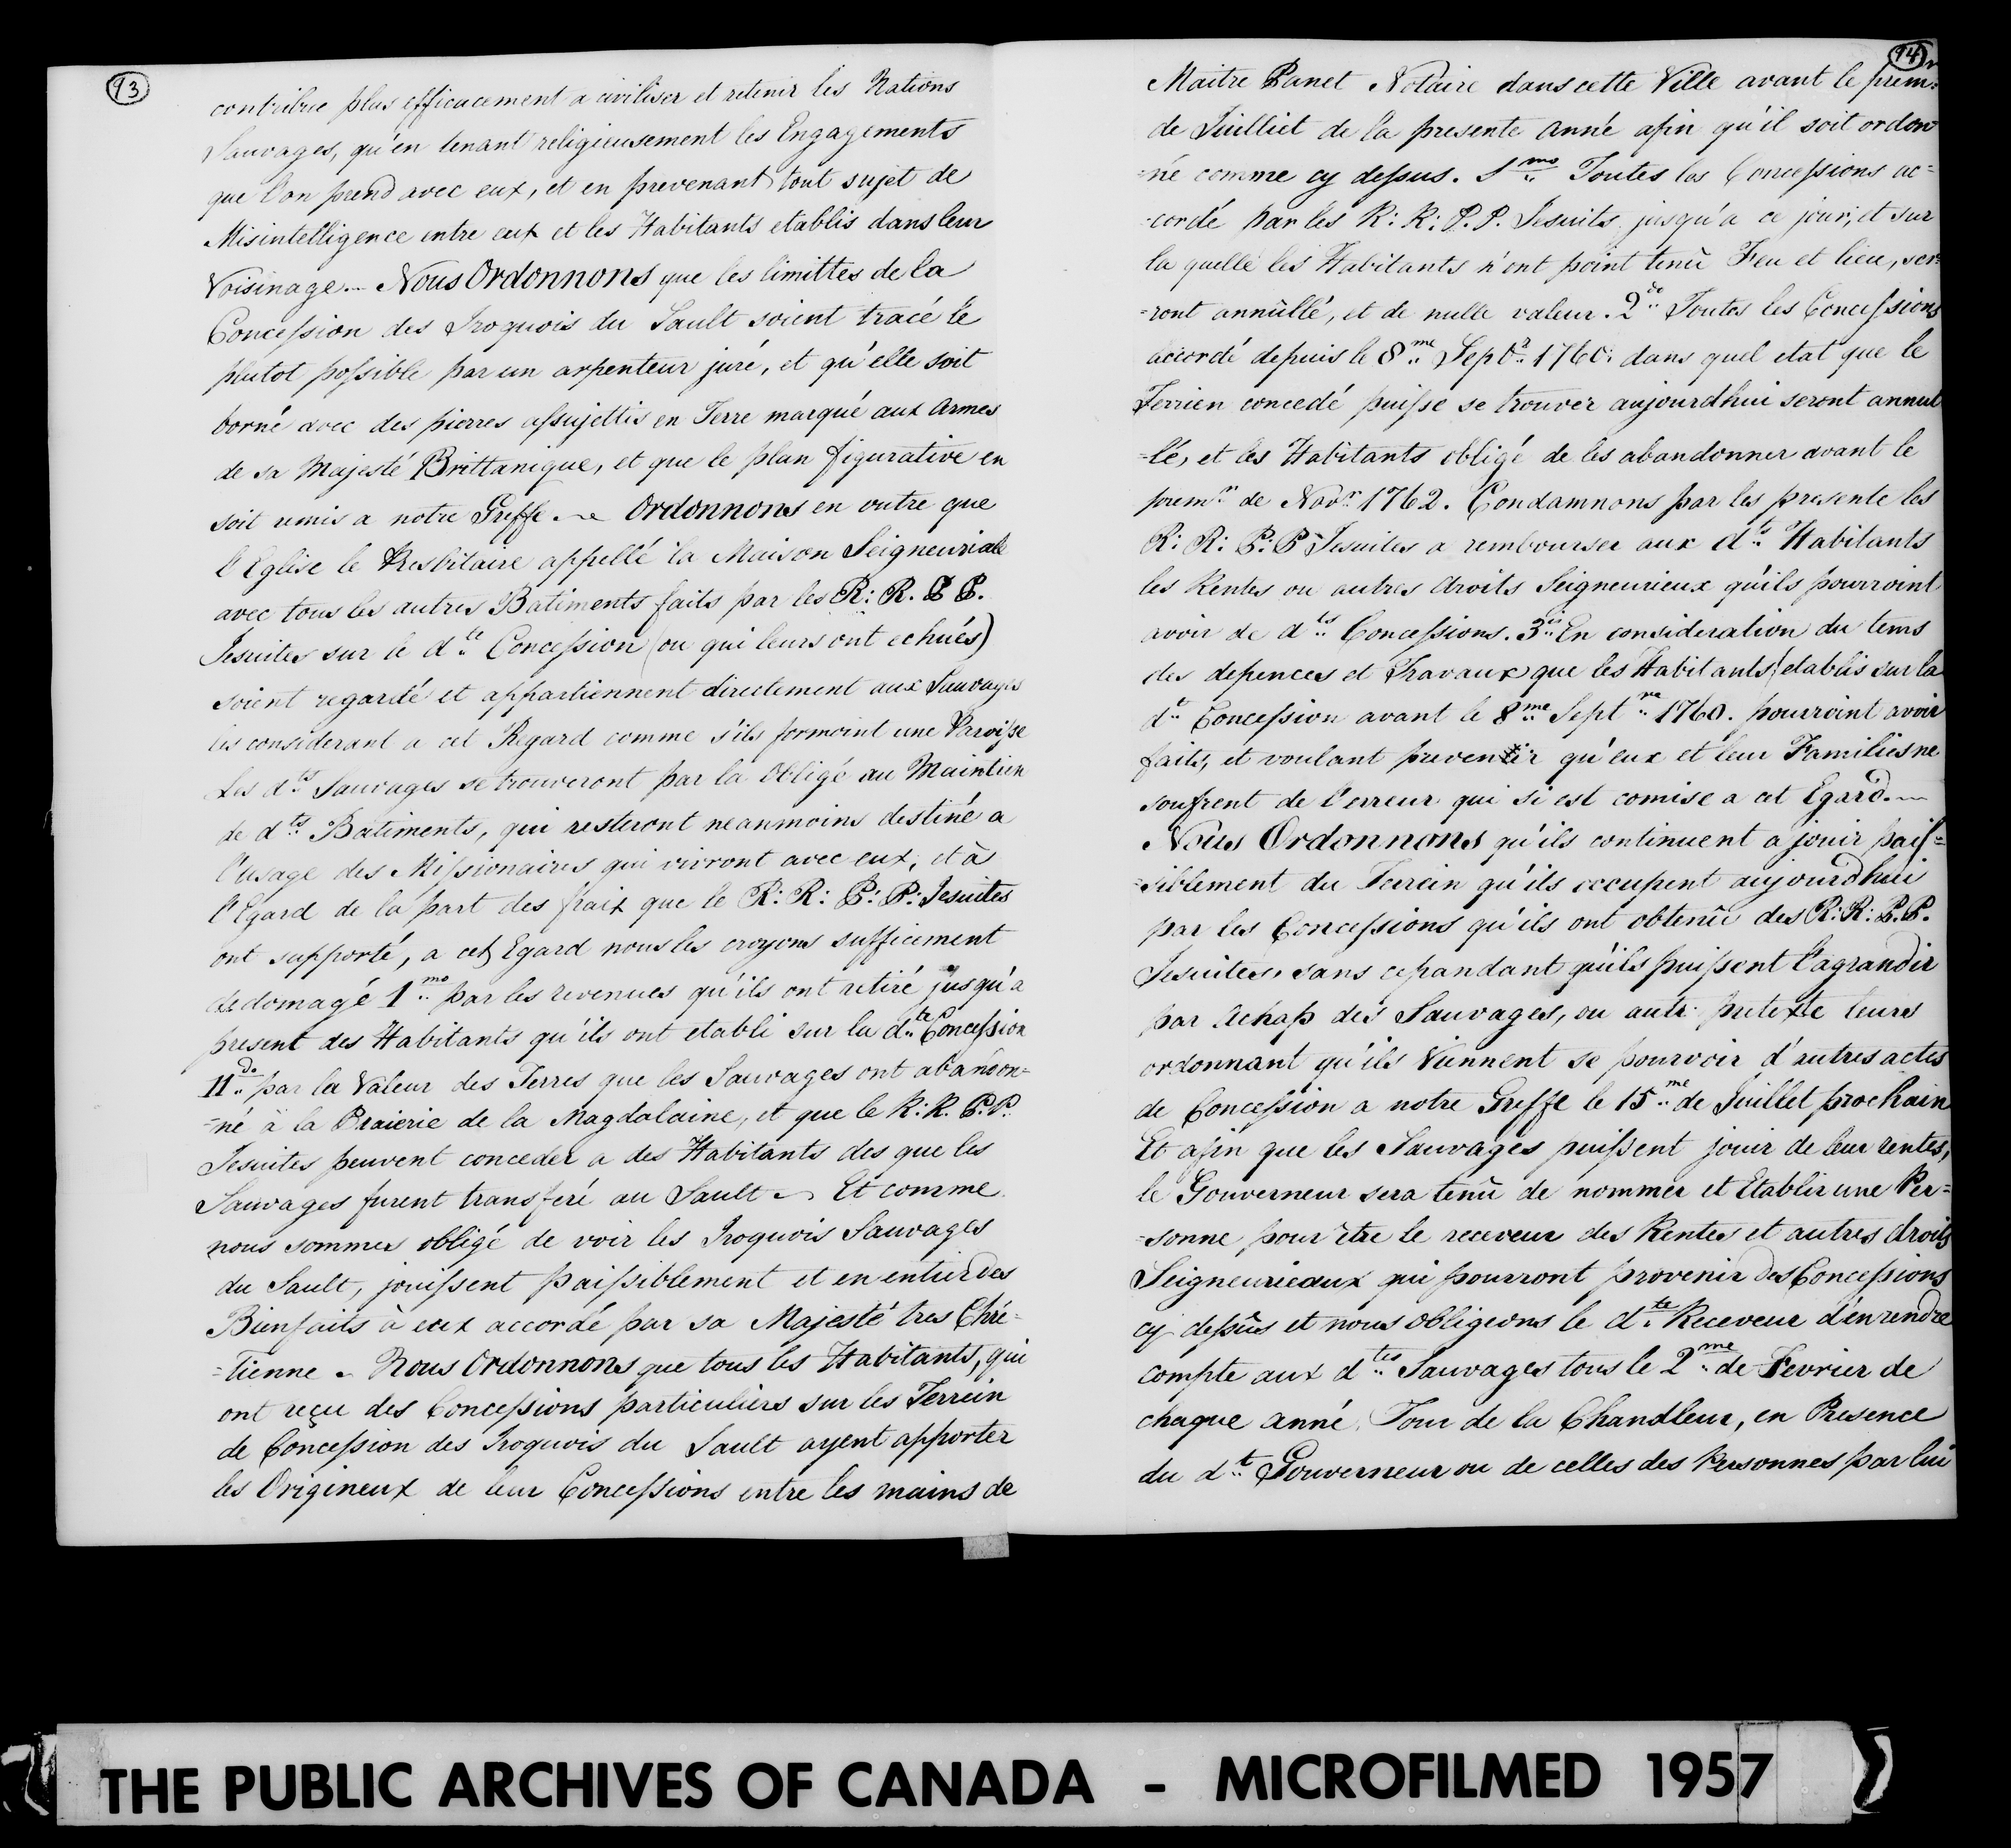 93
contribue plus efficacement a civiliser et retenir les Nations
Sauvages, qu'en tenant religieusement les Engagements
que l'on prend avec eux, et en prevenant tout sujet de
Misintelligence entre eux et les Habitants etablis dans leur
Voisinage.— Nous Ordonnons que les limittes de la
Concession des Iroquois du Sault soient tracé le
plutot possible par un arpenteur juré, et qu'elle soit
borné avec des pierres assujettis en Terre marqué aux Armes
de sa Majesté Brittanique, et que le plan figurative en
soit remis a notre Greffe.— Ordonnons en outre que
l'Eglise le Presbitaire appellé la Maison Seigneuriale
avec tous les autres Batiments faits par les R: R. P P.
Jesuites sur le dte Concession (ou qui leurs ont echués)
soient regardé et appartiennent directement aux Sauvages
les considerant a cet Regard comme s'ils formoint une Paroisse
Les dts Sauvages se trouveront par la Obligé au Maintien
de dts Batiments, qui resteront neanmoins destiné a
l'usage des Missionaires qui vivront avec eux; et à
l'Egard de la part des fraix que le R: R: P: P: Jesuites
ont supporté, a cet Egard nous les croyons sufficement
dedomagé 1mo par les revenues qu'ils ont retiré jusqu'a
present des Habitants qu'ils ont etabli sur la dte Concession
IIdo par la Valeur des Terres que les Sauvages ont abandon=
=né à la Praierie de la Magdalaine, et que le R: R. P: P.
Jesuites peuvent conceder a des Habitants des que les
Sauvages furent transferé au Sault — Et comme
nous sommes obligé de voir les Iroquois Sauvages
du Sault, jouissent paissiblement et en entier des
Bienfaits à eux accordé par sa Majesté tres Chré=
=tienne — Nous Ordonnons que tous les Habitants, qui
ont reçu des Concessions particuliers sur les Terrein
de Concession des Iroquois du Sault ayent apporter
les Origineux de leur Concessions entre les mains de
94
Maitre Panet Notaire dans cette Ville avant le premr
de Juilliet de la presente Anné afin qu'il soit ordon
=né comme cy dessus. 1mo Toutes les Concessions ac=
=cordé par les R: R: P. P. Jesuits jusqu'a ce jour, et sur
la quelle les Habitants n'ont point tenû Feu et lieu, ser=
=ront annûllé, et de nulle valeur. 2do Toutes les Concessions
accordé depuis le 8me Septr 1760: dans quel etat que le
Terrien concedé puisse se trouver aujourdhui seront annul
=lé, et les Habitants obligé de les abandonner avant le
premr de Novr 1762. Condamnons par les presente les
R: R: P: P Jesuites a rembourser aux dts Habitants
les Rentes ou autres droits Seigneurieux qu'ils pourroint
avoir de dts Concessions. 3is En consideration du tems
des depences et Travaux que les Habitants etablis sur la
dte Concession avant le 8me Septme 1760. pourroint avoir
faits, et voulant prevenir qu'eux et leur Familiesne
soufrent de l'erreur qui si est comise a cet Egard.—
Nous Ordonnons qu'ils continuent a jouir pais=
=siblement du Terrein qu'ils occupent aujourdhui
par les Concessions qu'ils ont obtenûe des R: R: P. P.
Jesuites, sans cepandant qu'ils puissent l'agrandir
par Achap des Sauvages, ou autr pretexte leurs
ordonnant qu'ils Viennent se pourvoir d'autres actes
de Concession a notre Greffe le 15me de Juillet prochain
Et afin que les Sauvages puissent jouir de leur rentes,
le Gouverneur sera tenû de nommer et Etablir une Per=
=sonne pour être le receveur des Rentes et autres droits
Seigneurieaux qui pourront provenir des Concessions
cy dessûs et nous obligeons le dte Receveur d'en rendre
compte aux dtes Sauvages tous le 2me de Fevrier de
chaque anné Jour de la Chandleur, en Presence
du dt Gouverneur ou de celles des Personnes par lui
THE PUBLIC ARCHIVES OF CANADA - MICROFILMED 1957